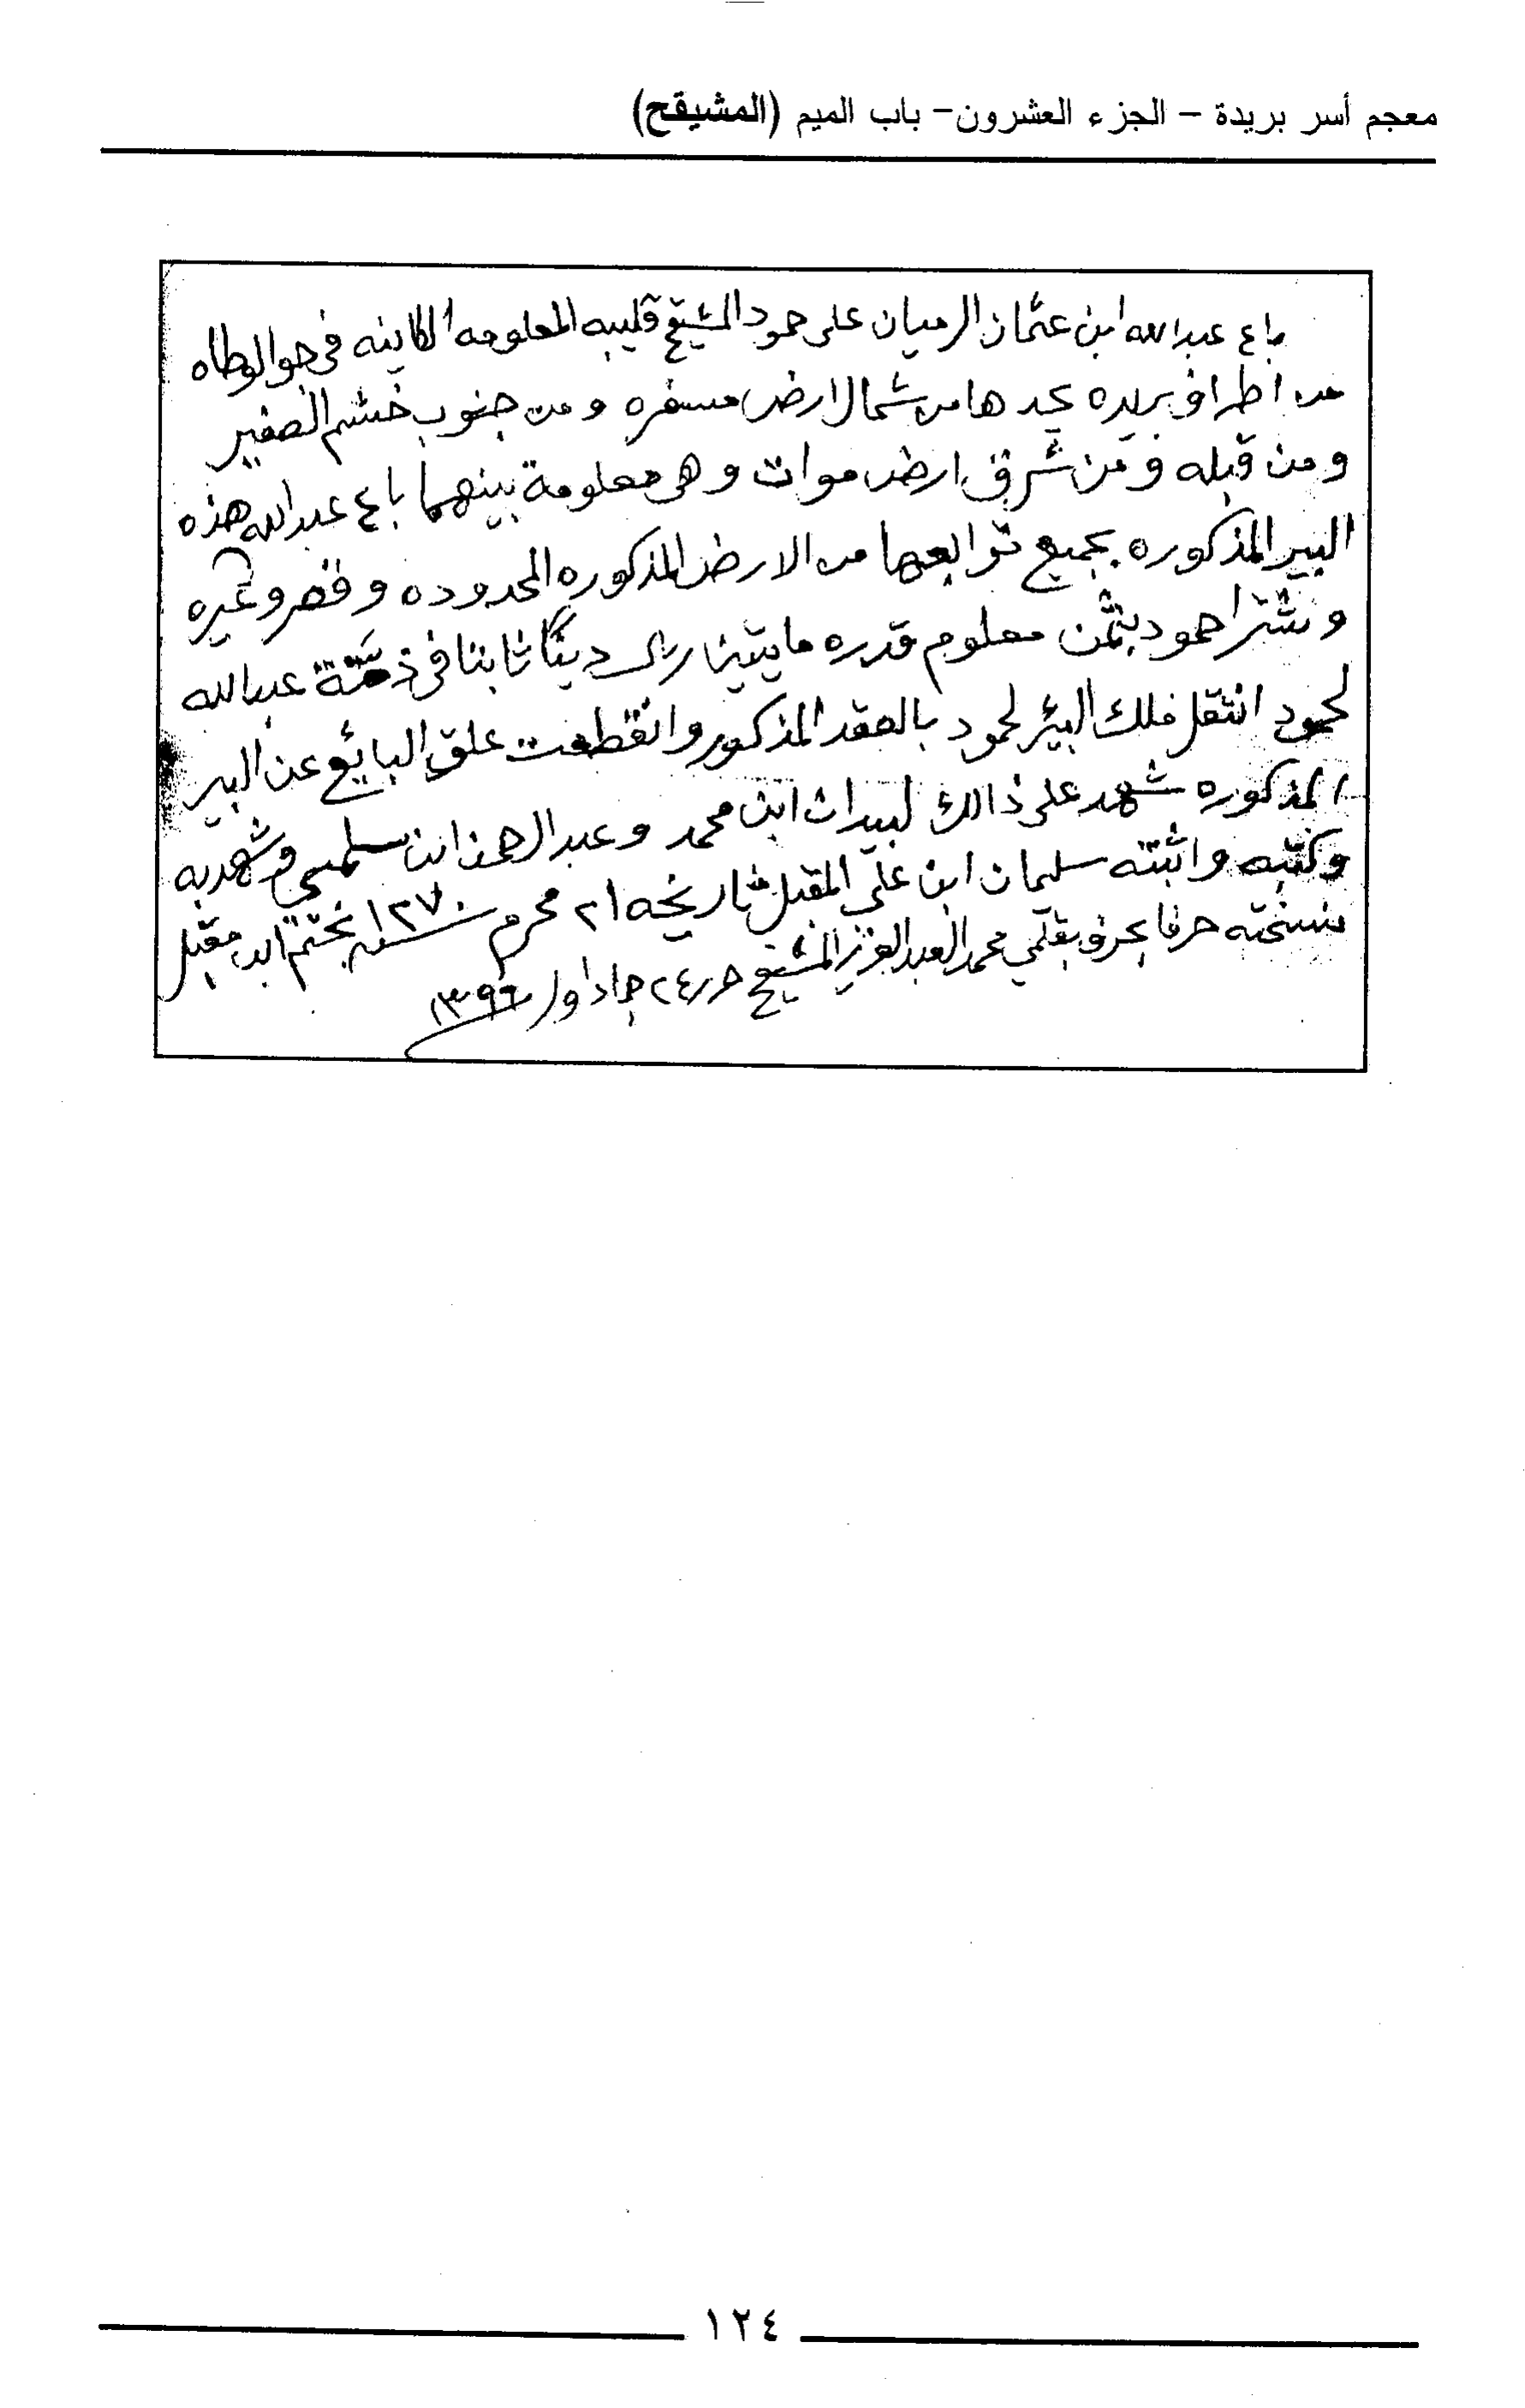 معجم أسر بريدة – الجزء العشرون – باب الميم (المشيقح)
باع عبدالله ابن عثمان الرميان على حمود المشيقح قليبه المعلومه الكاينه في جو الوطاه
من اطراف بريده يحدها من شمال ارض مسفره ومن جنوب خشم النفير
ومن قبله ومن شرق ارض موات وهي معلومة بينهما باع عبدالله هذه
البير المذكوره بجميع توابعها من الارض المذكوره المحدوده وقصر وغيره
وشترا حمود بثمن معلوم قدره مايتين ريال دينًا ثابتا في ذمة عبدالله
لحمود انتقل ملك البئر لحمود بالعقد المذكور وانقطعت علق البايع عن البير
المذكوره شهد على ذالك لبيدان ابن محمد وعبدالرحمن ابن وشهد به
وكتبه واثبته سليمان ابن علي المقبل تاريخه ٢١ محرم سنه ١٢٧٠ بختم ابن مقبل
نسخته حرفا بحرف بقلمي محمد العبدالعزيز المشيقح حرر ٢٤ جماد اول ١٣٩٦
١٢٤